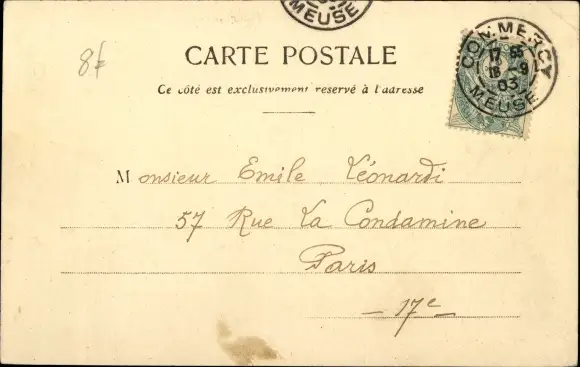 MEUSE
8f
CARTE POSTALE
Ce côté est exclusivement reservé à l'adresse
COMMERCY
17
16 9
03
MEUSE
Monsieur Emile Léonardi
57 Rue La Condamine
Paris
— 17e —